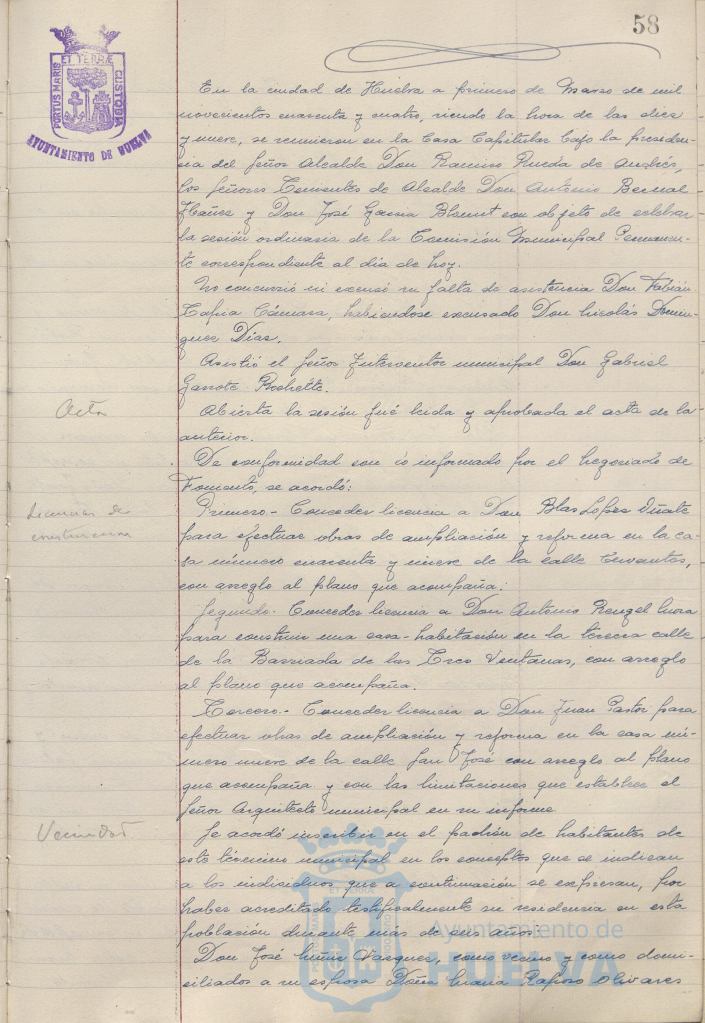 58
PORTUS MARIS ET TERRÆ CUSTODIA
AYUNTAMIENTO DE HUELVA
En la ciudad de Huelva a primero de Marzo de mil
novecientos cuarenta y cuatro, siendo la hora de las diez
y nueve, se reunieron en la Casa Capitular bajo la presiden-
cia del Señor Alcalde Don Ramiro Rueda de Andrés,
los Señores Tenientes de Alcalde Don Antonio Bernal
Ibáñez y Don José García Blomet con objeto de celebrar
la sesión ordinaria de la Comisión Municipal Permanen-
te correspondiente al día de hoy.
No concurrió ni excusó su falta de asistencia Don Fabián
Tapia Cámara, habiéndose excusado Don Nicolás Domin-
guez Dias.
Asistió el Señor Interventor municipal Don Gabriel
Garrote
Acta
Abierta la sesión fué leida y aprobada el acta de la
anterior.
De conformidad con lo informado por el Negociado de
Fomento, se acordó:
Licencias de
construccion
Primero.- Conceder licencia a Don Blas Lopez
para efectuar obras de ampliación y reforma en la ca-
sa número cuarenta y nueve de la calle Cervantes,
con arreglo al plano que acompaña.
Segundo.- Conceder licencia a Don Antonio Rengel
para construir una casa-habitación en la tercera calle
de la Barriada de las Tres Ventanas, con arreglo
al plano que acompaña.
Tercero.- Conceder licencia a Don Juan Pastor para
efectuar obras de ampliación y reforma en la casa nú-
mero nueve de la calle San José con arreglo al plano
que acompaña y con las limitaciones que establece el
Señor Arquitecto municipal en su informe
Vecindad
Se acordó inscribir en el padrón de habitantes de
este término municipal en los conceptos que se indican
a los individuos que a continuación se expresan, por
haber acreditado testificalmente su residencia en esta
población durante más de dos años.
Don José Vazquez, como vecino y como domi-
ciliados a su esposa Doña Raposo Olivares
Ayuntamiento de
HUELVA